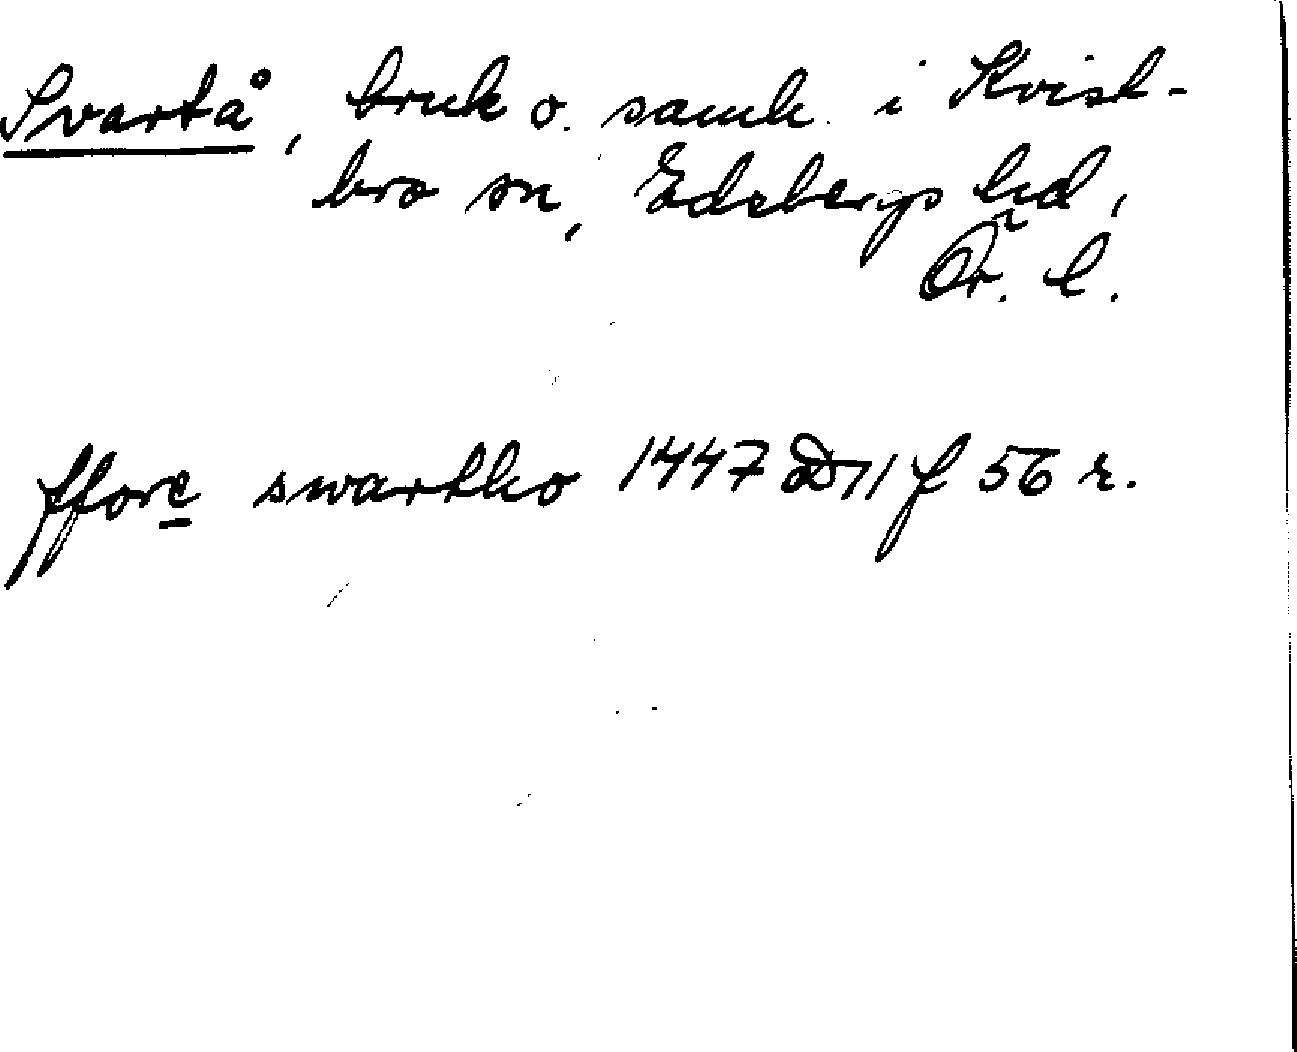 Svartå, bruk o. samh. i Kvist-
bro sn, Edsbergs hd,
Ör. l.
ffore swartho 1447 D11 f 56 r.